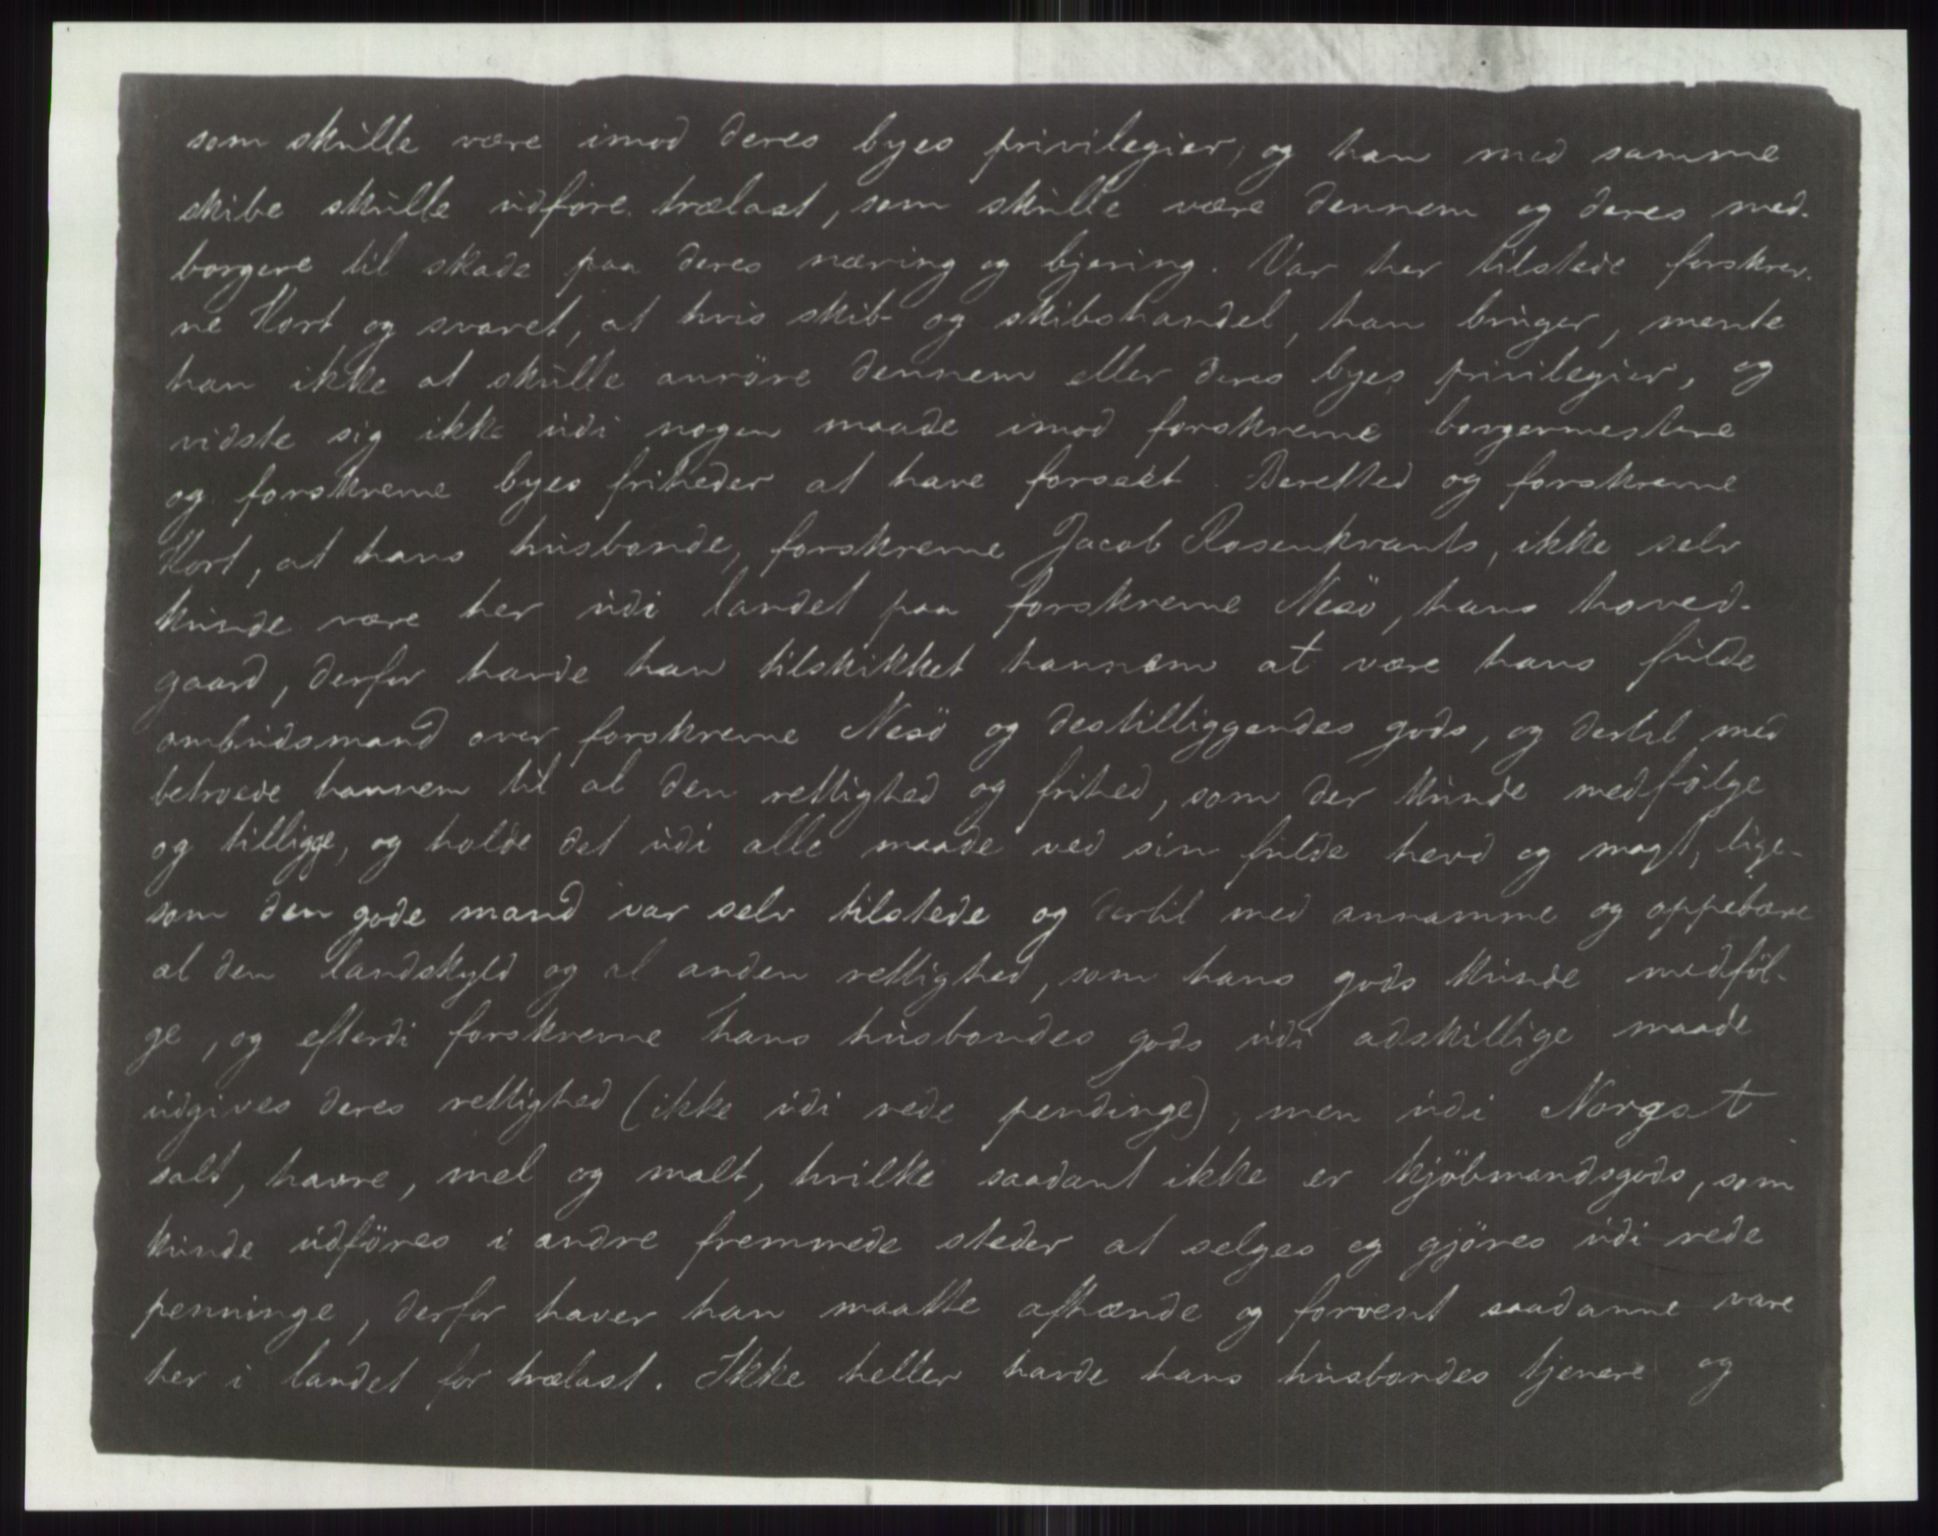 som skulle være imod deres byes privilegier, og han med samme
skibe skulle udføre trælast, som skulle være dennem og deres med-
borgere til skade paa deres næring og bjering. Var her tilstede forskrev-
ne Kort og svaret, at hvis skib og skibshandel, han bruger, mente
han ikke at skulle anröre dennem eller deres byes privilegier, og
vidste sig ikke udi nogen maade imod forskrevne borgermestere
og forskrevne byes friheder at have forseet. Beretted og forskrevne
Kort, at hans husbonde, forskrevne Jacob Rosenkrants, ikke selv
kunde være her udi landet paa forskrevne Nesö, hans hoved-
gaard, derfor havde han tilskikket hannem at være hans fulde
ombudsmand over forskrevne Nesö og destilliggendes gods, og dertil med
betroede hannem til al den rettighed og frihed, som der kunde medfölge
og tilligge, og holde det udi alle maade ved sin fulde hevd og magt, lige-
som den gode mand var selv tilstede og dertil med annamme og oppebære
al den landskyld og al anden rettighed, som hans gods kunde medföl-
ge, og efterdi forskrevne hans husbondes gods udi adskillige maade
udgives deres rettighed (ikke udi rede pendinge), men udi Norgst
salt, havre, mel og malt, hvilke saadant ikke er kjöbmandsgods, som
kunde udföres i andre fremmede steder at selges og gjöres udi rede
penninge, derfor haver han maatte afhænde og forvent saadanne vare
her i landet for trælast. Ikke heller havde hans husbondes tjenere og